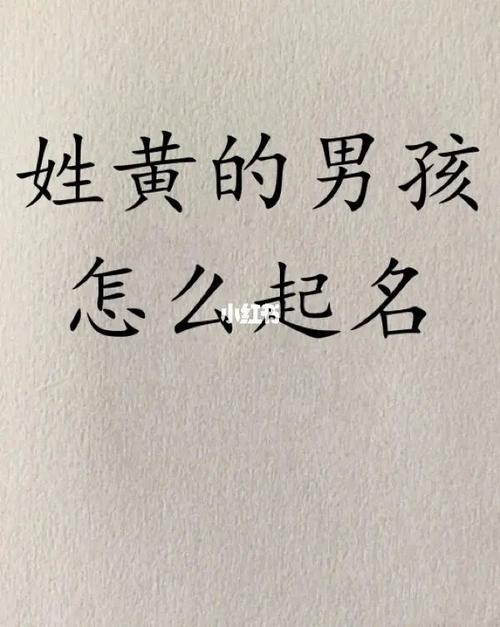 姓黄的男孩
怎么起名
小红书